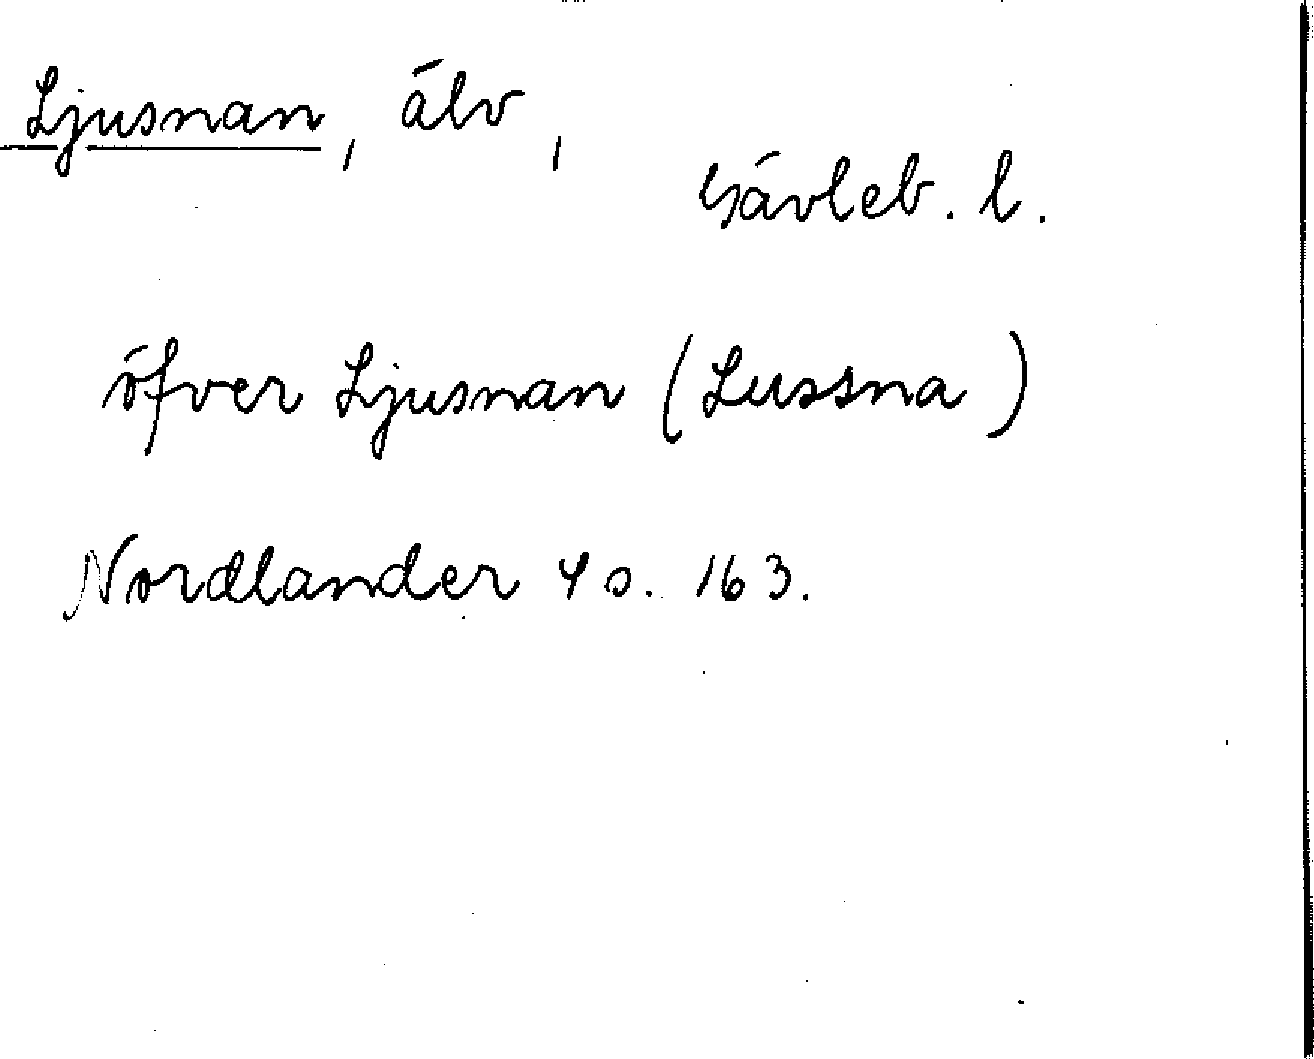 Ljusnan, älv,
Gävleb. l.
öfver Ljusnan (Lussna)
Nordlander 4 s. 163.